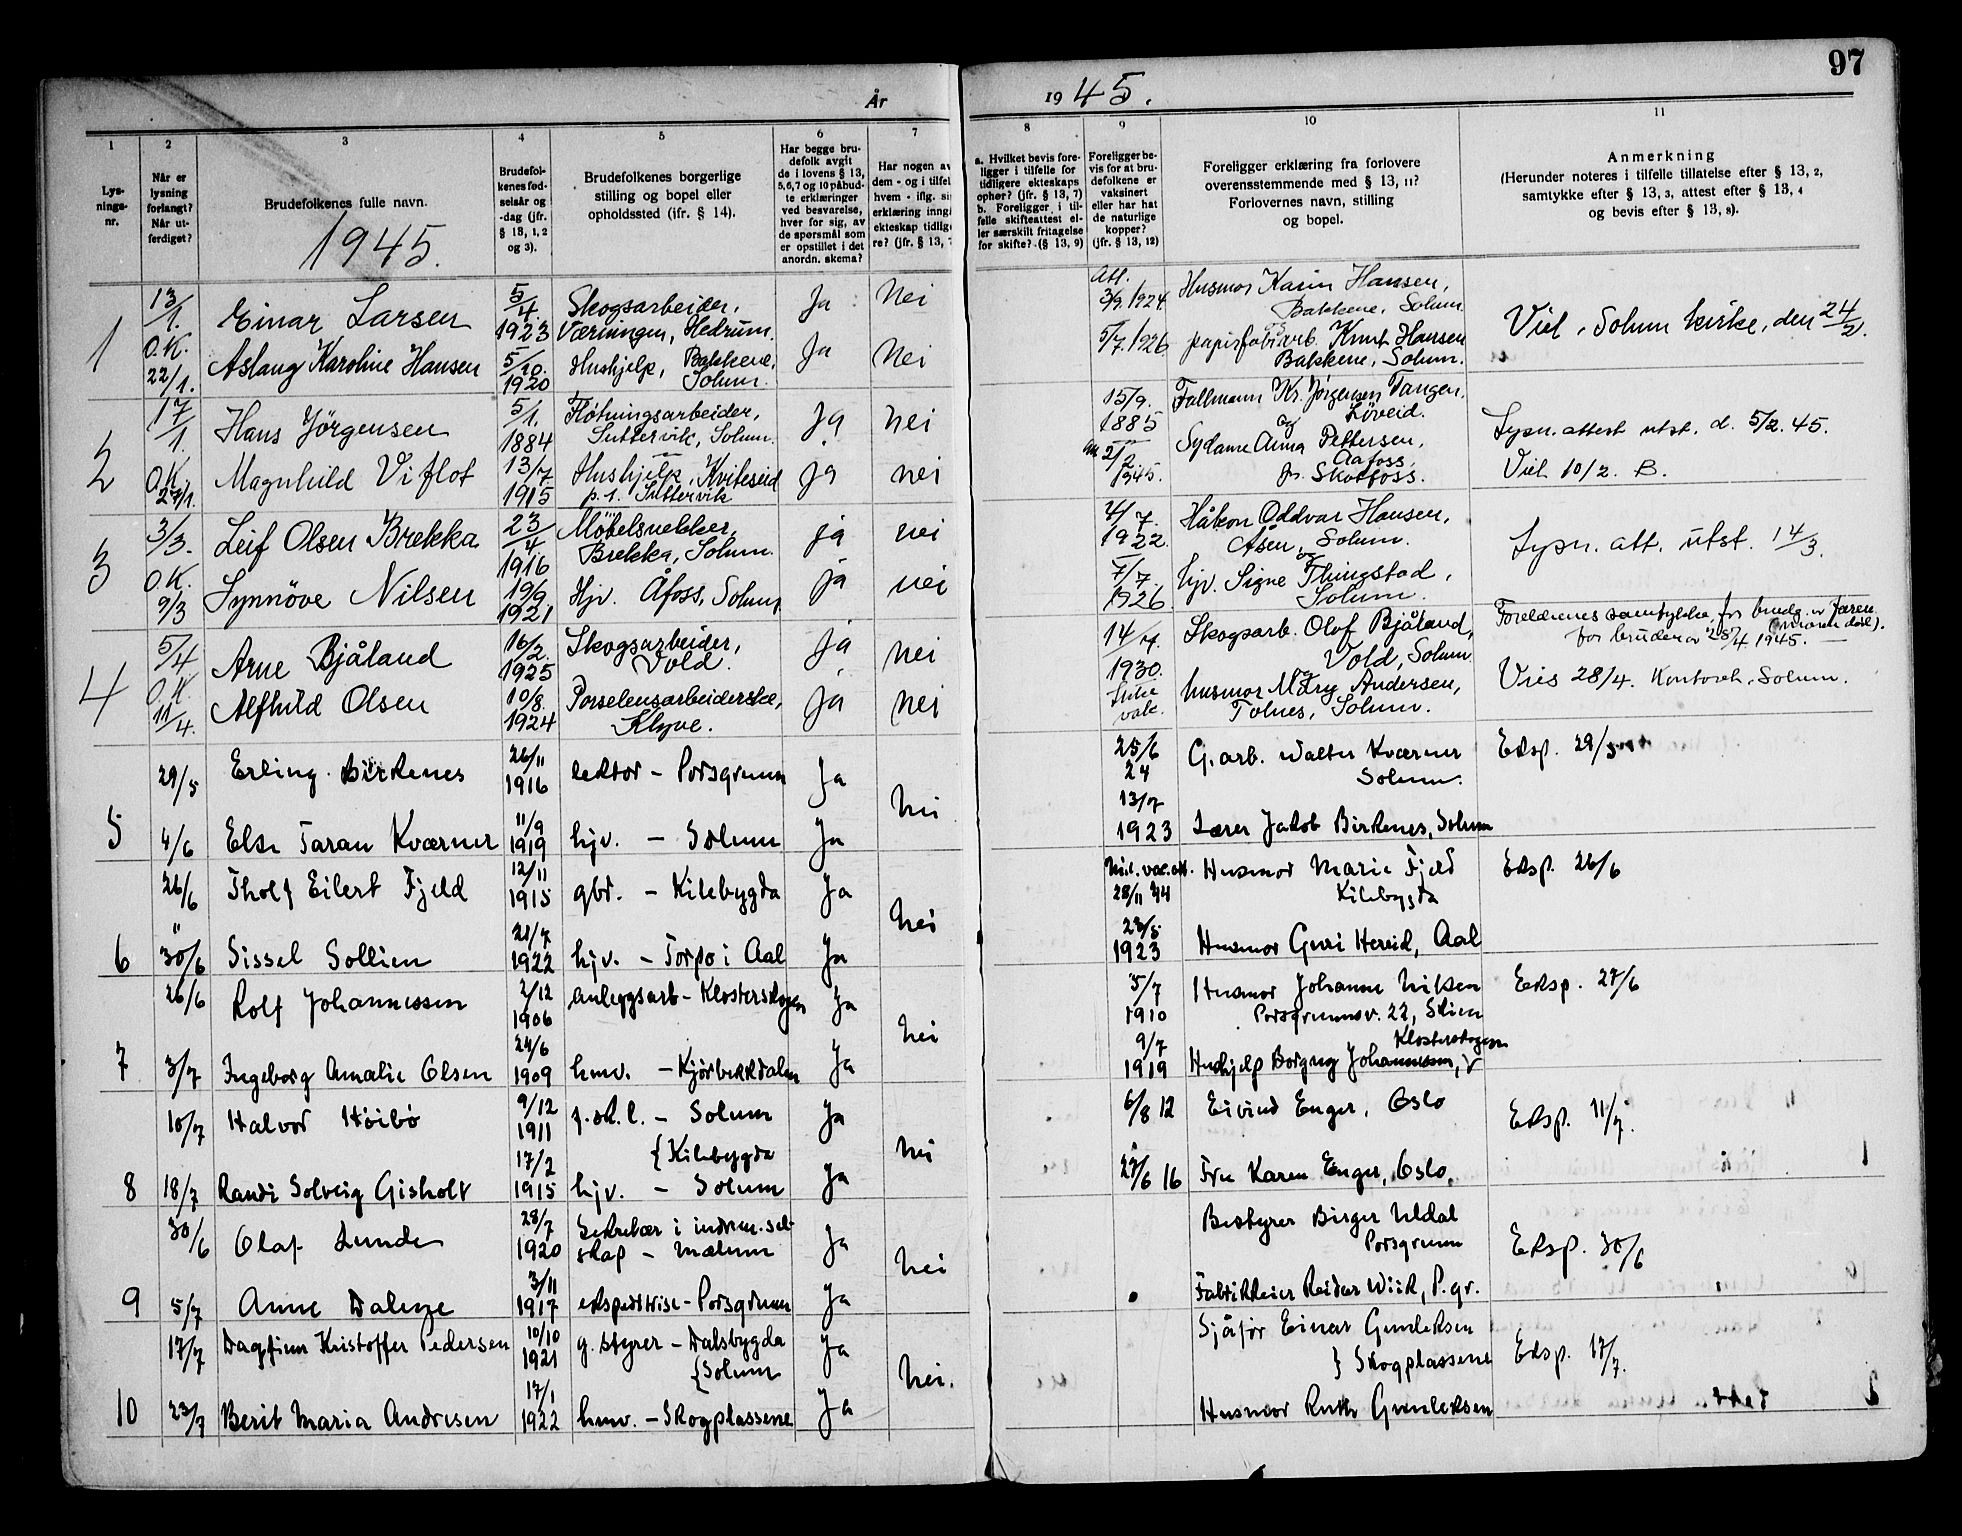 97
År 1945.
1 2 3 4 5 6 7 8 9 10 11
Lys-
nings-
nr.
Når er
lysning
forlangt?
Når ut-
ferdiget?
Brudefolkenes fulle navn.
1945.
Brudefol-
kenes fød-
selsår og
-dag (jfr.
§ 13, 1, 2
og 3).
Brudefolkenes borgerlige
stilling og bopel eller
opholdssted (jfr. § 14).
Har begge bru-
defolk avgit
de i lovens § 13,
5,6,7 og 10 påbud-
te erklæringer
ved besvarelse,
hver for sig, av
de spørsmål som
er opstillet i det
anordn. skema?
Har nogen av
dem - og i tilfel
hvem - iflg. si
erklæring inngå
ekteskap tidlige
re? (jfr. § 13, 7
a. Hvilket bevis fore-
ligger i tilfelle for
tidligere ekteskaps
ophør? (jfr. § 13, 7)
b. Foreligger i til-
felle skifteattest el-
ler særskilt fritagelse
for skifte? (§ 13, 9)
Foreligger be-
vis for at bru-
defolkene er
vaksinert
eller har hat
de naturlige
kopper?
(jfr. § 13, 12)
Foreligger erklæring fra forlovere
overensstemmende med § 13, 11?
Forlovernes navn, stilling
og bopel.
Anmerkning
(Herunder noteres i tilfelle tillatelse efter § 13, 2,
samtykke efter § 13, 3, attest efter § 13, 4
og bevis efter § 13, 8).
1 13/1. Einar Larsen 5/4 1923 Skogsarbeider, Værningen, Hedrum. Ja Nei Att. 3/9 1924 Husmor Karin Hansen, Bakkene, Solum
O.K. 22/1. Aslaug Karoline Hansen 5/10. 1920 Hushjelp, Bakkene, Solum. Ja Nei 5/7. 1926 og papirfabr.arb. Knut Hansen Bakkene, Solum.
Viel. Solum kirke, den 24/2.
2 17/1. Hans Jörgensen 5/1. 1884 Fløtningsarbeider, Suttervik, Solum. Ja nei 15/9. 1885 Fallmann Kr. Jørgensen Tangen, Löveid.
O.K. 27/1. Magnhild Viflot 13/7 1915 Hushjelp, Kviteseid p.t. Suttervik ja nei 2/2 1945. og Sydame Anna Pettersen, Aafoss, pr. Skotfoss.
Lysn. attest utst. d. 5/2. 45.
Viel 10/2. B.
3 3/3. Leif Olsen Brekka 23/4 1916 Møbelsnekker, Brekka, Solum. ja nei 4/7. 1922. Håkon Oddvar Hansen, Åsen, Solum.
O.K. 9/3 Synnöve Nilsen 19/9 1921 Hjv. Åfoss, Solum ja nei 7/7. 1926 og hjv. Signe Thingstad, Solum.
Lysn. att. utst. 14/3.
4 5/4 Arne Bjåland 16/2. 1925 Skogsarbeider, Vold. ja nei 14/4. 1930. Skogsarb. Olof Bjåland, Vold, Solum
O.K. 11/4. Alfhild Olsen 10/8. 1924 Porselensarbeiderske, Klyve. ja nei Ikke vak. husmor Mary Andersen, Tolnes, Solum.
Foreldrenes samtykke for brudg. av faren (moren död).
for bruden av 25/4 1945.
Vies 28/4. Kontorek, Solum.
5 29/5 Erling Birkenes 26/11 1916 lektor - Porsgrunn Ja nei 25/6 24 G. arb. Walter Kværner Solum. Eksp. 29/5
4/6 Else Taran Kværner 11/9 1919 hjv. - Solum Ja 13/7 1923 Lærer Jakob Birkenes, Solum
6 26/6 Tholf Eilert Fjeld 12/11 1915 gbr. - Kilebygda Ja nei Mil. vac. att. 28/11 44 Husmor Marie Fjeld Kilebygda Eksp. 26/6
30/6 Sissel Sollien 21/7 1922 hjv. - Torpo i Aal Ja 23/5 1923 Husmor Guri Hereid, Aal
7 26/6 Rolf Johannessen 2/12 1906 anleggsarb - Klosterskogen Ja nei 5/7 1910 Husmor Johanne Nilsen Porsgrunnsv. 22, Skien Eksp. 27/6
3/7 Ingeborg Amalie Olsen 24/6 1909 hmv. - Kjørbekkdalen Ja 9/7 1919 Hushjelp Borgny Johannessen, Klosterskogen
8 10/7 Halvor Höibö 9/12 1911 f.sk.l. - Solum {Kilebygda Ja nei 6/8 12 Eivind Enger, Oslo Eksp. 11/7.
18/7 Randi Solveig Gisholt 17/2 1915 hjv. - Solum Ja 27/6 16 Fru Karen Enger, Oslo.
9 30/6 Olaf Lunde 28/7 1920 Sekretær i indrem.sel-skap - Mælum Ja nei Bestyrer Birger Uldal Porsgrunn Eksp. 30/6
5/7 Anne Dalene 3/11 1917 ekspeditrise - Porsgrunn Ja Fabrikkeier Reidar Wiik, P.gr.
10 17/7 Dagfinn Kristoffer Pedersen 10/10 1921 g. styrer - Dalsbygda {Solum Ja nei. Sjåfør Einar Gunleksen } Skogplassene Eksp. 17/7.
23/7 Berit Maria Andresen 17/1 1922 hmv. - Skogplassene Ja Husmor Ruth Gunleksen